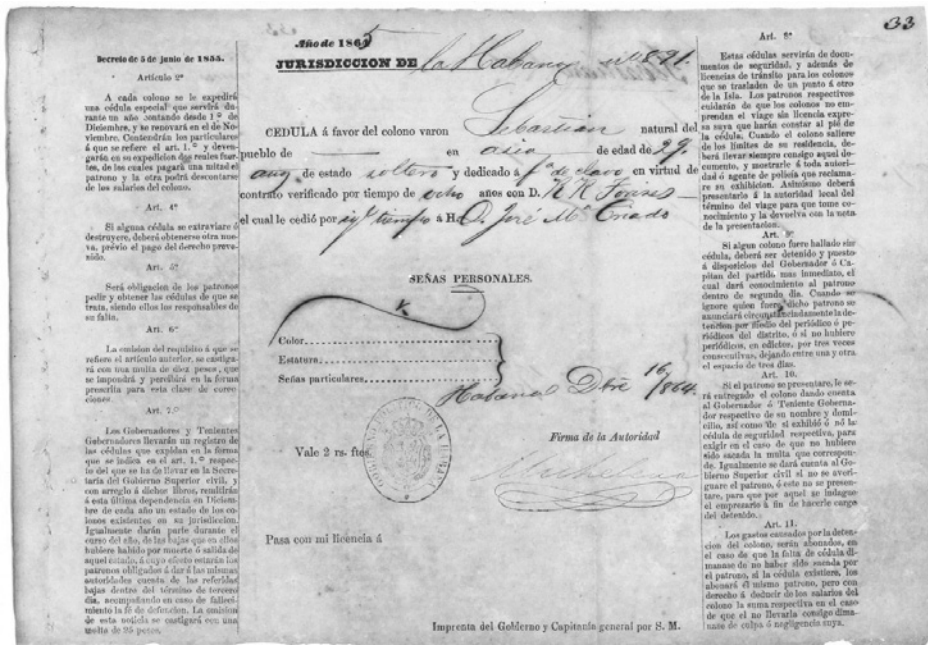 33
Decreto de 5 de junio de 1855.
Artículo 2º
A cada colono se le expedirá
una cédula especial que servirá du-
rante un año contando desde 1.º de
Diciembre, y se renovará en el de No-
viembre. Contendrán los particulares
á que se refiere el art. 1.º y deven-
garán en su expedicion dos reales fuer-
tes, de los cuales pagará una mitad el
patrono y la otra podrá descontarse
de los salarios del colono.
Art. 4º
Si alguna cédula se extraviare ó
destruyere, deberá obtenerse otra nue-
va, prévio el pago del derecho preve-
nido.
Art. 5º
Será obligacion de los patronos
pedir y obtener las cédulas de que se
trata, siendo ellos los responsables de
su falta.
Art. 6º
La omision del requisito á que se
refiere el artículo anterior, se castiga-
rá con una multa de diez pesos, que
se impondrá y percibirá en la forma
prescrita para esta clase de correc-
ciones.
Art. 7.º
Los Gobernadores y Tenientes
Gobernadores llevarán un registro de
las cédulas que expidan en la forma
que se indica en el art. 1.º respec-
to del que se ha de llevar en la Secre-
taría del Gobierno Superior civil, y
con arreglo á dichos libros, remitirán
á esta última dependencia en Diciem-
bre de cada año un estado de los co-
lonos existentes en su jurisdiccion.
Igualmente darán parte durante el
curso del año, de las bajas que en ellos
hubiere habido por muerte ó salida de
aquel estado, á cuyo efecto estarán los
patronos obligados á dar á las mismas
autoridades cuenta de las referidas
bajas dentro del término de tercero
dia, acompañando en caso de falleci-
miento la fé de defuncion. La omision
de esta noticia se castigará con una
multa de 25 pesos.
Año de 1865
JURISDICCION DE la Habana nº 891.
CEDULA á favor del colono varon Sebastian natural del
pueblo de en asia de edad de 29.
años de estado soltero y dedicado á en virtud de
contrato verificado por tiempo de ocho años con D.
el cual le cedió por igl tiempo á D. José Mª Criado
SEÑAS PERSONALES.
Color
Estatura
Señas particulares
Habana Dbre 16/864.
Vale 2 rs. ftes.
Firma de la Autoridad
Pasa con mi licencia á
Imprenta del Gobierno y Capitanía general por S. M.
Art. 8º
Estas cédulas servirán de docu-
mentos de seguridad, y además de
licencias de tránsito para los colonos
que se trasladen de un punto á otro
de la Isla. Los patronos respectivos
cuidarán de que los colonos no em-
prendan el viage sin licencia expre-
sa suya que harán constar al pié de
la cédula. Cuando el colono saliere
de los límites de su residencia, de-
berá llevar siempre consigo aquel do-
cumento, y mostrarle á toda autori-
dad ó agente de policía que reclama-
re su exhibicion. Asimismo deberá
presentarlo á la autoridad local del
término del viage para que tome co-
nocimiento y la devuelva con la nota
de la presentacion.
Art. 9º
Si algun colono fuere hallado sin
cédula, deberá ser detenido y puesto
á disposicion del Gobernador ó Ca-
pitan del partido mas inmediato, el
cual dará conocimiento al patrono
dentro de segundo dia. Cuando se
ignore quien fuere dicho patrono se
anunciará circunstanciadamente la de-
tencion por medio del periódico ó pe-
riódicos del distrito, ó si no hubiere
periódicos, en edictos, por tres veces
consecutivas, dejando entre una y otra
el espacio de tres dias.
Art. 10.
Si el patrono se presentare, le se-
rá entregado el colono dando cuenta
al Gobernador ó Teniente Goberna-
dor respectivo de su nombre y domi-
cilio, así como de si exhibió ó nó la
cédula de seguridad respectiva, para
exigir en el caso de que no hubiere
sido sacada la multa que correspon-
de. Igualmente se dará cuenta al Go-
bierno Superior civil si no se averi-
guare el patrono, ó este no se presen-
tare, para que por aquel se indague
el empresario á fin de hacerle cargo
del detenido.
Art. 11.
Los gastos causados por la deten-
cion del colono, serán abonados, en
el caso de que la falta de cédula di-
manase de no haber sido sacada por
el patrono, si la cédula existiere, los
abonará el mismo patrono, pero con
derecho á deducir de los salarios del
colono la suma respectiva en el caso
de que el no llevarla consigo dima-
nase de culpa ó negligencia suya.